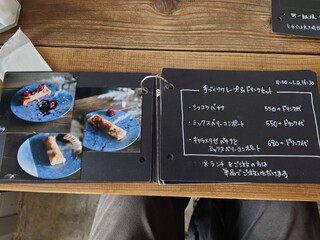 手づくりクレープ&ドリンクセット
11:00〜L.O.16:30
・ショコラバナナ 550+ドリンク代
・ミックスベリーコンポート 550+ドリンク代
・キャラメルバナナと
ミックスベリーコンポート 680+ドリンク代
※ランチをご注文の方は
単品でご注文いただけます